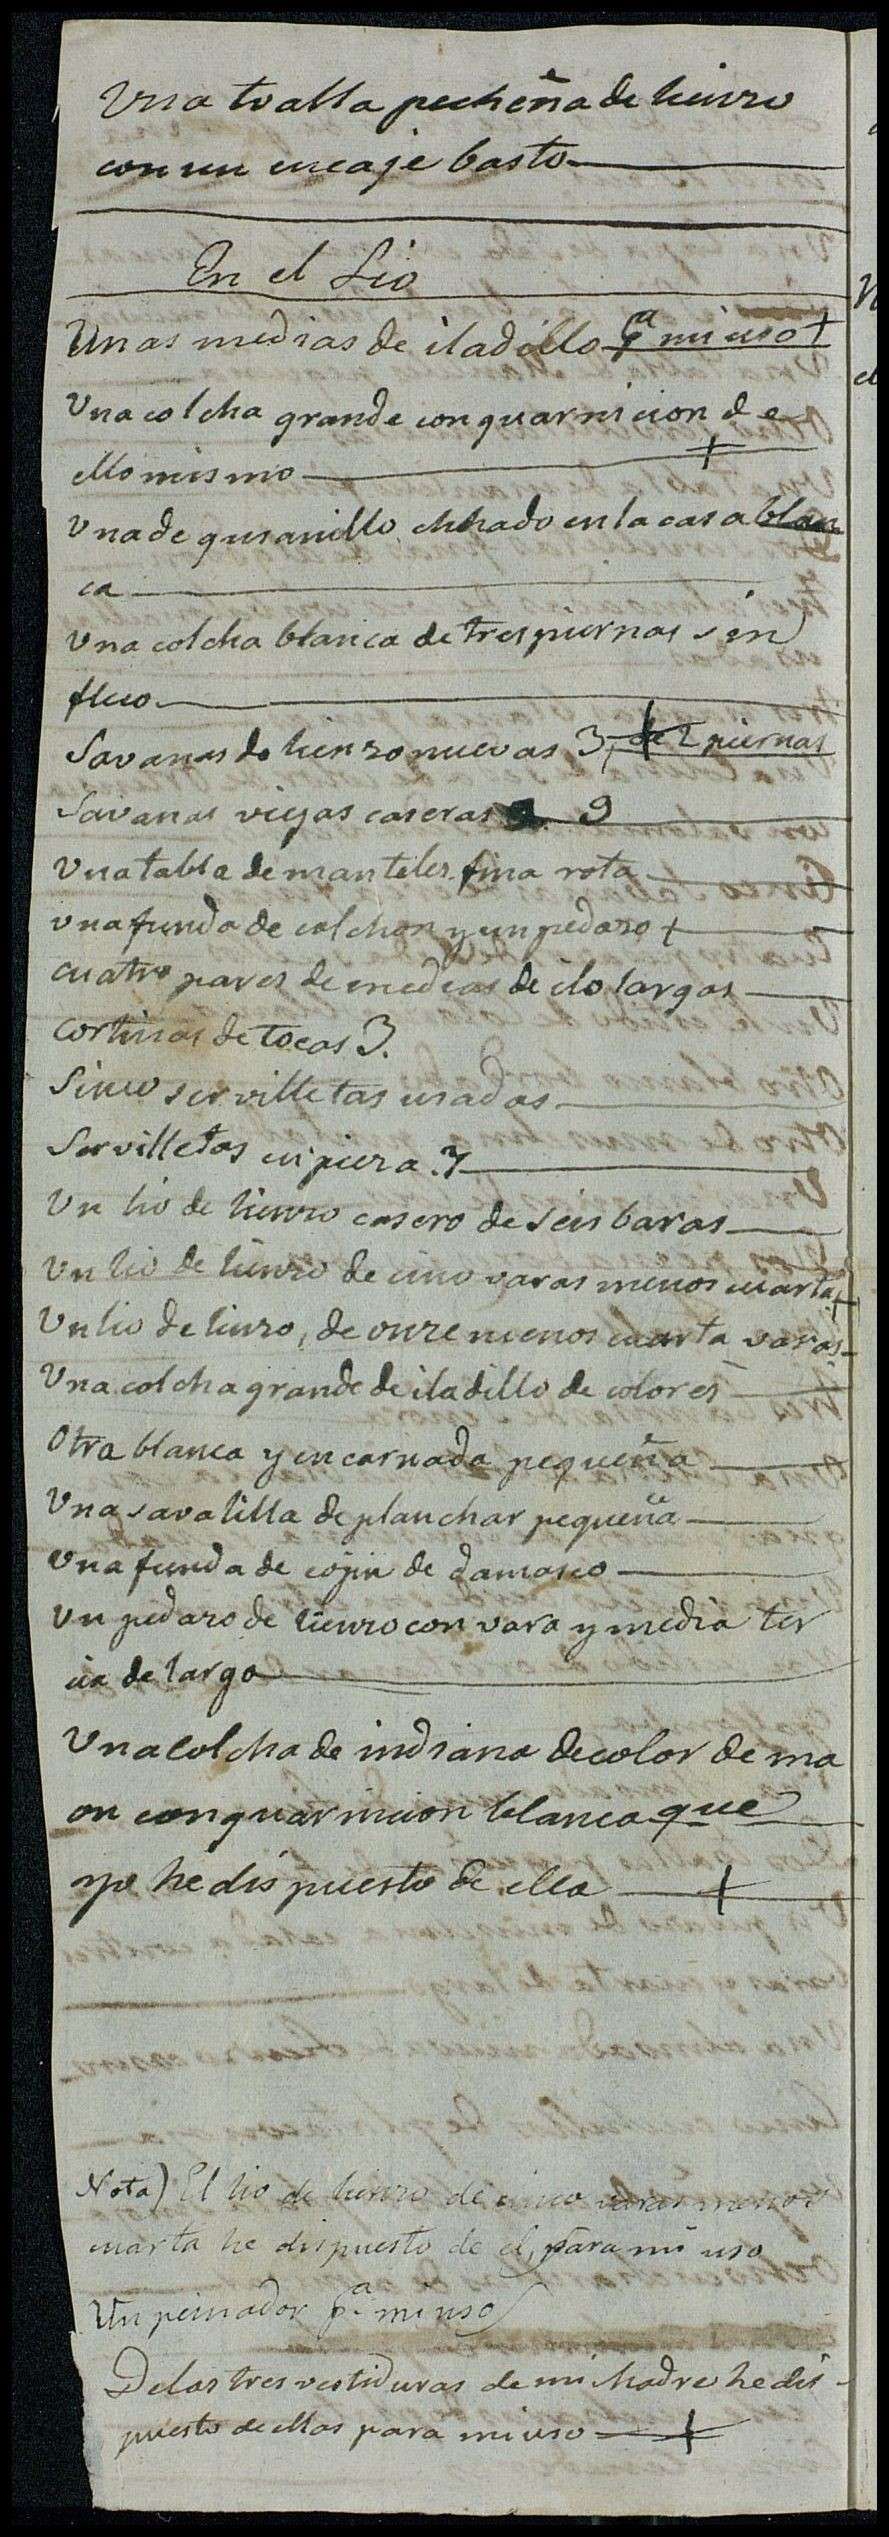 Una toalla pecheña de lienzo
con un encaje basto
En el Lio
Unas medias de iladillo pª mi uso +
Una colcha grande con guarnicion de
ello mismo +
Una de gusanillo echado en la casa blan
ca
Una colcha blanca de tres piernas sin
flueo
Savanas de lienzo nuevas 3, de 2 piernas
Savanas viejas caseras 9
Una tabla de manteles fina rota
una funda de colchon y un pedazo +
cuatro pares de medias de ilo largas
cortinas de tocas 3.
Sinco servilletas usadas
Servilletas en pieza 7
Un lio de lienzo casero de seis baras
Un lio de lienzo de cinco varas menos cuarta +
Un lio de lienzo, de onze menos cuarta varas
Una colcha grande de iladillo de colores
Otra blanca y encarnada pequeña
Una savalilla de planchar pequeña
Una funda de cojin de damasco
Un pedazo de lienzo con vara y media ter
cia de largo
Una colcha de indiana de color de ma
on con guarnicion blanca que
yo he dispuesto de ella +
Nota) El lio de lienzo de cinco varas menos
cuarta he dispuesto de el, para mi uso
Un peinador pª mi uso
De las tres vestiduras de mi Madre he dis
puesto de ellas para mi uso +